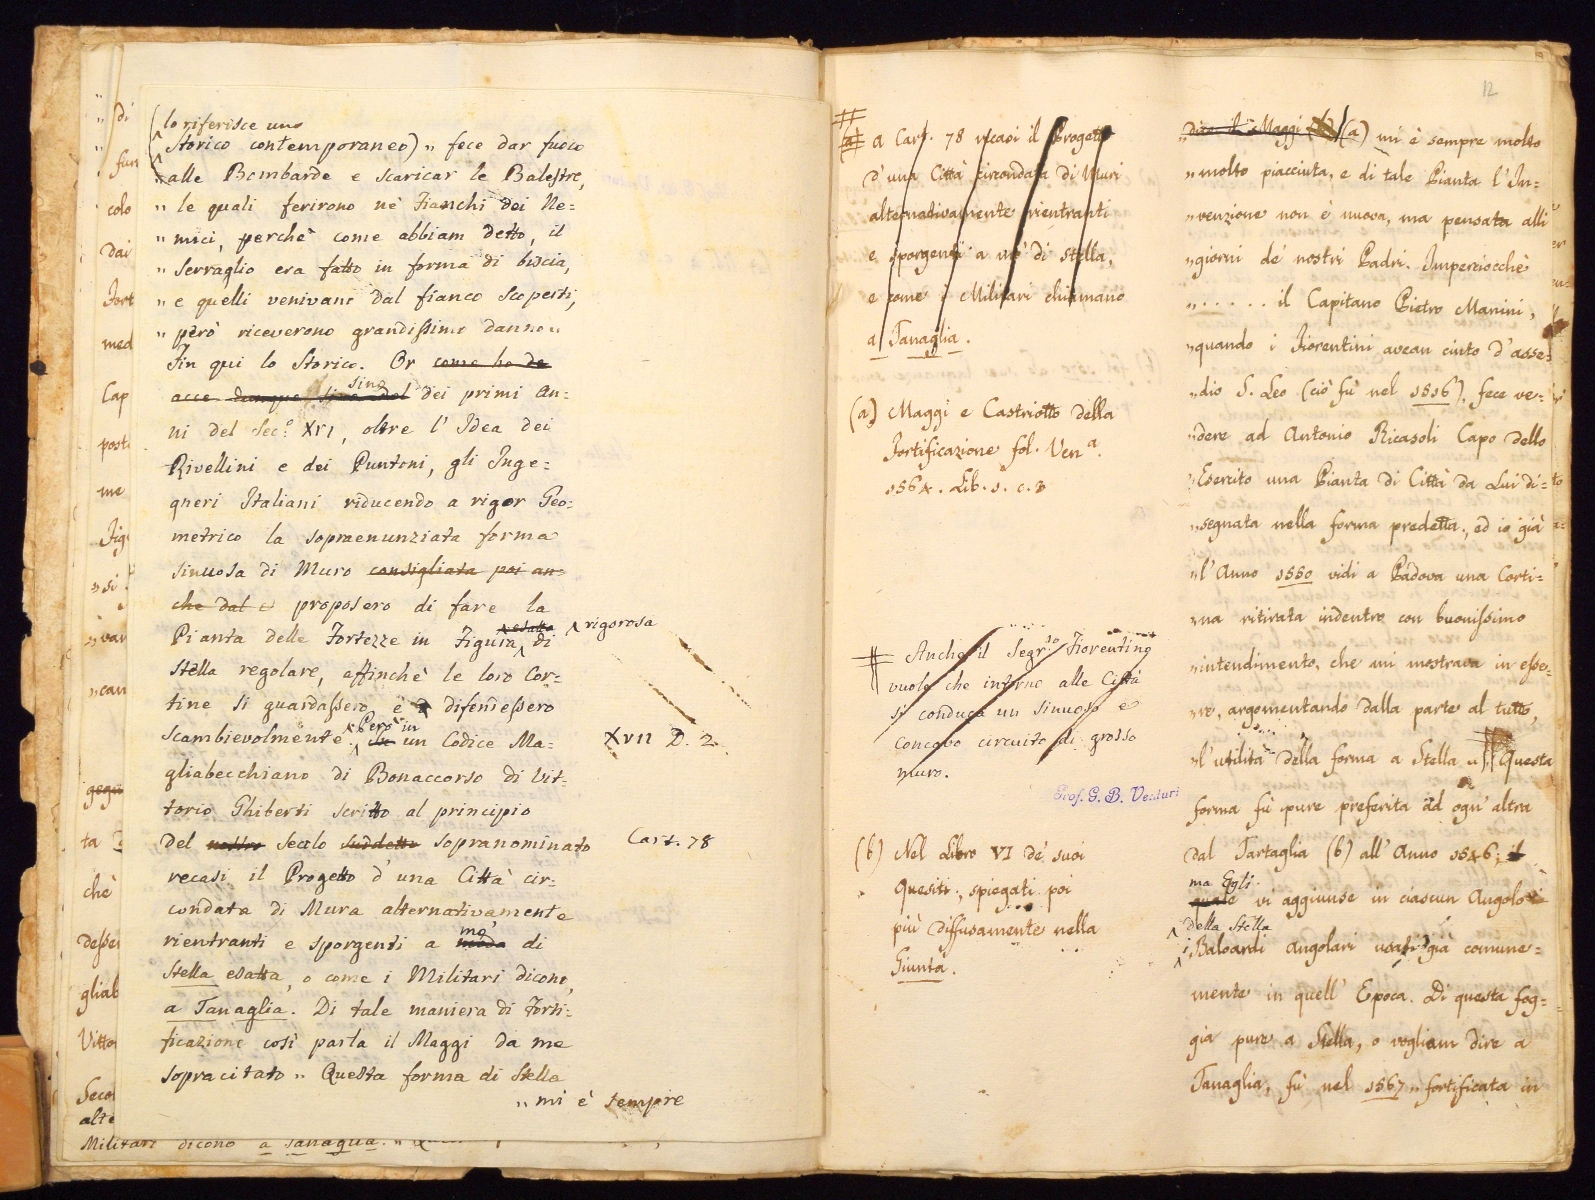 (lo riferisce uno
Storico contemporaneo) „ fece dar fuoco
„ alle Bombarde e scaricar le Balestre,
„ le quali ferirono ne' Fianchi dei Ne=
„ mici, perchè come abbiam detto, il
„ Serraglio era fatto in forma di biscia,
„ e quelli venivano dal fianco scoperti,
„ però riceverono grandissimo danno „
Fin qui lo Storico. Or come ho de
acce dunque sino dal sino dei primi an=
ni del Sec.º XVI, oltre l' Idea dei
Rivellini e dei Puntoni, gli Inge=
gneri Italiani riducendo a rigor Geo=
metrico la sopraenunziata forma
sinuosa di Muro consigliata poi an=
che dal proposero di fare la
Pianta delle Fortezze in Figura esatta rigorosa di
Stella regolare, affinchè le loro Cor=
tine si guardassero e difendessero
scambievolmente. Però in un Codice Ma=
XVII D. 2.
gliabecchiano di Bonaccorso di Vit=
torio Ghiberti scritto al principio
del nostro Secolo suddetto sopranominato
Cart. 78
recasi il Progetto d' una Città cir=
condata di Mura alternativamente
rientranti e sporgenti a moda mo' di
Stella esatta, o come i Militari dicono,
a Tanaglia. Di tale maniera di Forti=
ficazione così parla il Maggi da me
sopracitato „ Questa forma di Stella
„ mi è sempre
di
fun
colo
dai
Fort
med
Cap
posti
me
Fig
„ si
„ van
„ can
ta
chè
desse
gliab
Vitto
Seco
alte
Militari dicono a Tanaglia. „
12
(a) a Cart. 78 recasi il Progetto
d' una Città circondata di Muri
alternativamente rientranti
e sporgenti a mo' di Stella,
e come i Militari chiamano
a Tanaglia.
(a) Maggi e Castriotto della
Fortificazione fol. Ven.ª
1564. Lib. 1. c. 3
Anche il Segr.io Fiorentino
vuole che intorno alle Città
si conduca un sinuoso e
concavo circuito di grosso
muro.
Prof. G. B. Venturi
(b) Nel Libro VI de' suoi
Quesiti; spiegati poi
più diffusamente nella
Giunta.
dice il Maggi (a) mi è sempre molto
„ molto piacciuta, e di tale Pianta l' In=
„ venzione non è nuova, ma pensata alli
„ giorni de' nostri Padri. Imperciocchè
„ . . . . . il Capitano Pietro Manini,
„ quando i Fiorentini avean cinto d' asse=
„ dio S. Leo (ciò fù nel 1516), fece ve=
„ dere ad Antonio Ricasoli Capo dello
„ Esercito una Pianta di Città da Lui di=
„ segnata nella forma predetta, ed io già
„ l' Anno 1550 vidi a Padova una Corti=
„ na ritirata indentro con buonissimo
„ intendimento, che mi mostrava in esse=
„ re, argomentando dalla parte al tutto,
„ l' utilità della forma a Stella „ Questa
forma fù pure preferita ad ogn' altra
dal Tartaglia (b) all' Anno 1546; il
ma Egli
quale vi aggiunse in ciascun Angolo
della Stella
i Baloardi angolari usati già comune=
mente in quell' Epoca. Di questa fog=
gia pure a Stella, o vogliam dire a
Tanaglia, fù nel 1567 „ fortificata in